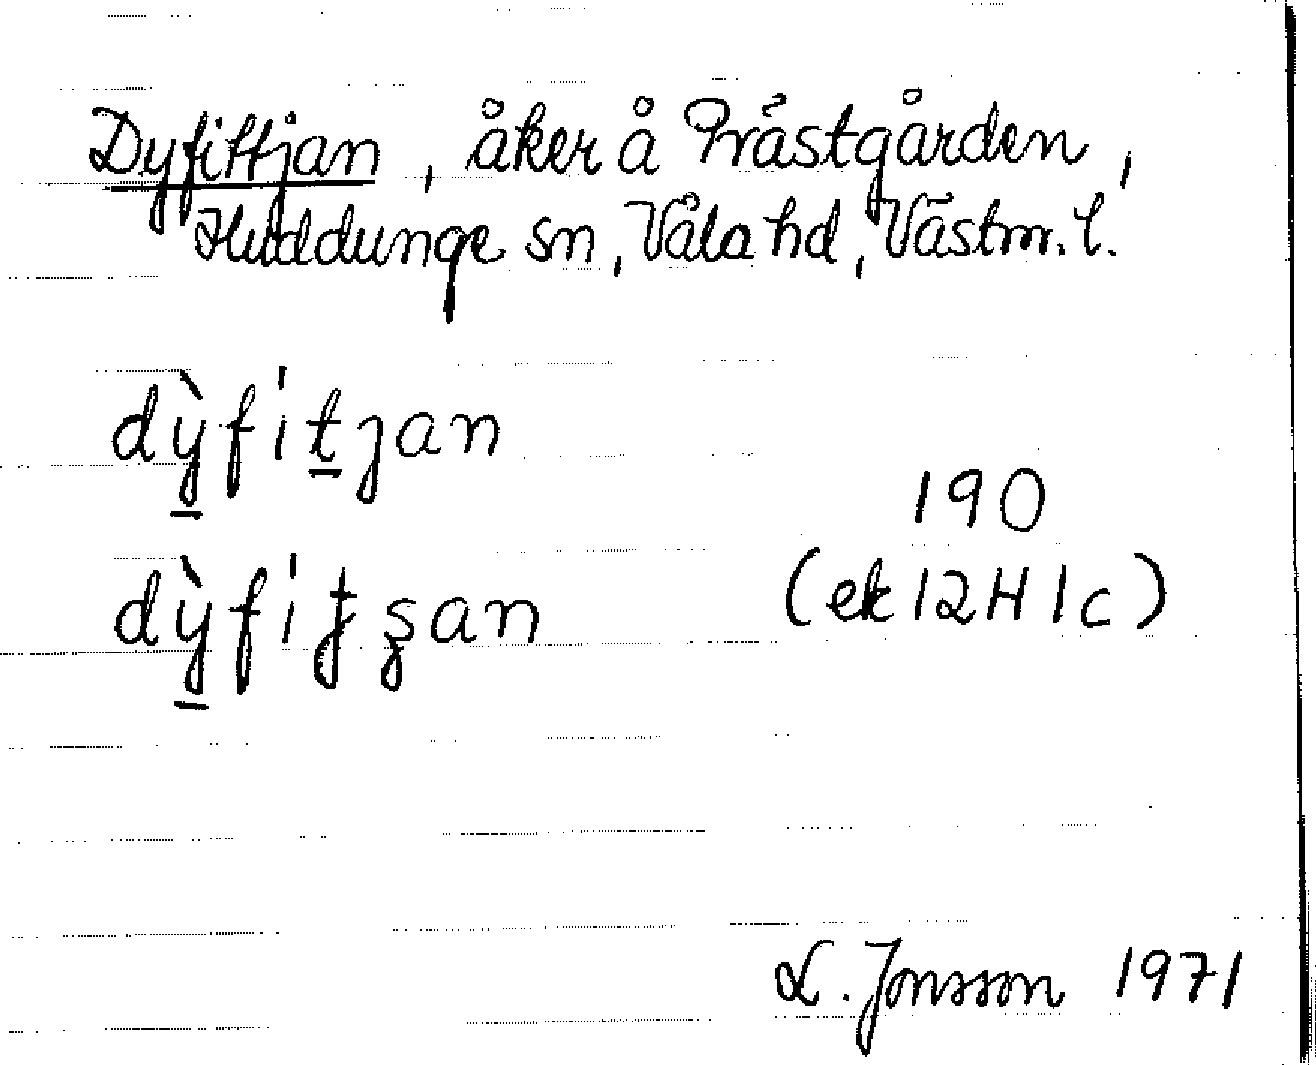 Dyfittjan, åker å Prästgården,
Huddunge sn, Våla hd, Västm. l.
dỳfítjan
190
dỳfíţşan
(ek 12H 1c)
L. Jonsson 1971